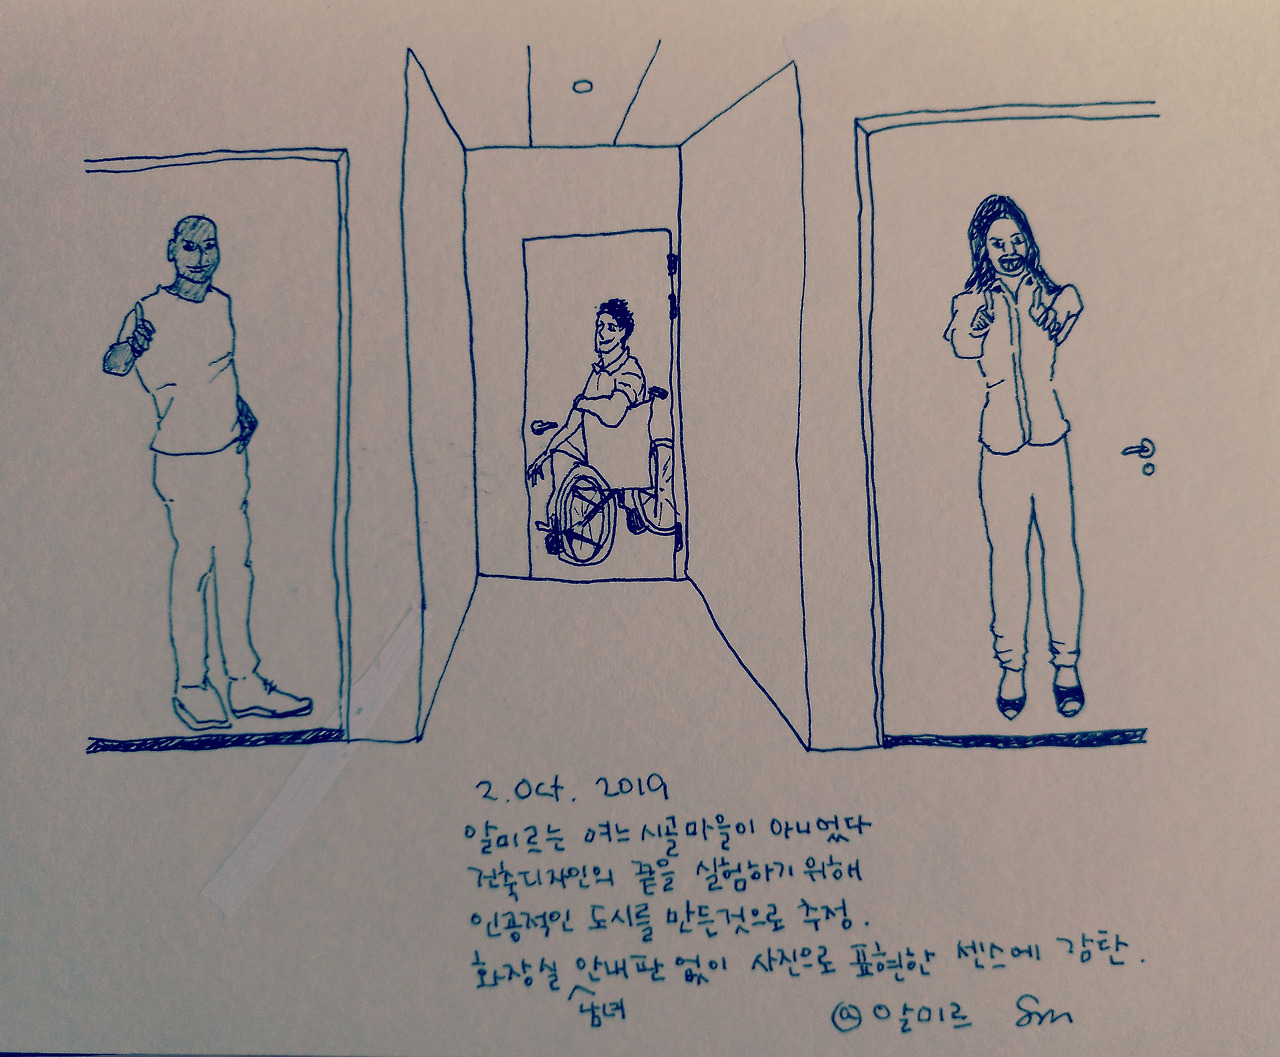 2. Oct. 2019
알미르는 여느 시골마을이 아니었다
건축디자인의 끝을 실험하기 위해
인공적인 도시를 만든것으로 추정.
화장실 안내판 없이 사진으로 표현한 센스에 감탄.
남녀
@알미르 Sm